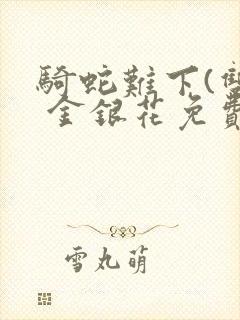 騎蛇難下(雙
金銀花免費
雪丸萌